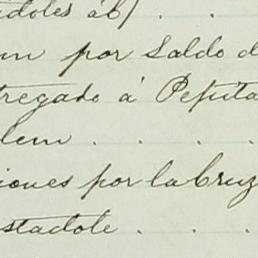 idoles áb/ . .
un por Saldo d
tregado á Pepita
dem . . . .
iones por la Cruz
stadote . . .